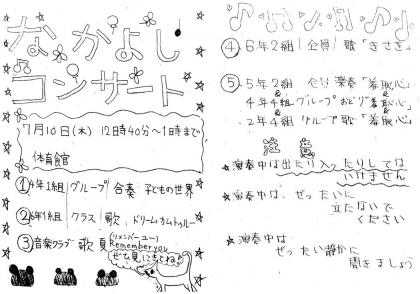 なかよし
コンサート
7月10日(木) 12時40分〜1時まで
体育館
①4年1組 グループ 合奏 子どもの世界
②6年1組 クラス 歌 ドリームカムトゥルー
③音楽クラブ 歌 夏
(リメンバーユー)
Remember you
ぜひ見にきてね
④6年2組 全員 歌「きせき」
⑤5年2組 合奏「羞恥心」
&
4年4組 グループ おどり「羞恥心」
&
2年4組 グループ 歌「羞恥心」
注意
★演奏中は出たり入ったりしては
いけません
★演奏中は、ぜったいに
立たないで
ください
★演奏中は、
ぜったい静かに
聞きましょう